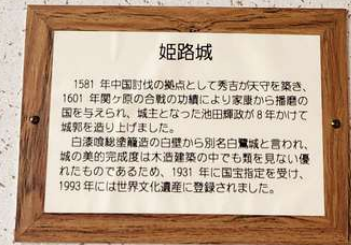 姫路城
1581 年中国討伐の拠点として秀吉が天守を築き、
1601 年関ヶ原の合戦の功績により家康から播磨の
国を与えられ、城主となった池田輝政が8年かけて
城郭を造り上げました。
白漆喰総塗籠造の白壁から別名白鷺城と言われ、
城の美的完成度は木造建築の中でも類を見ない優
れたものであるため、1931 年に国宝指定を受け、
1993年には世界文化遺産に登録されました。